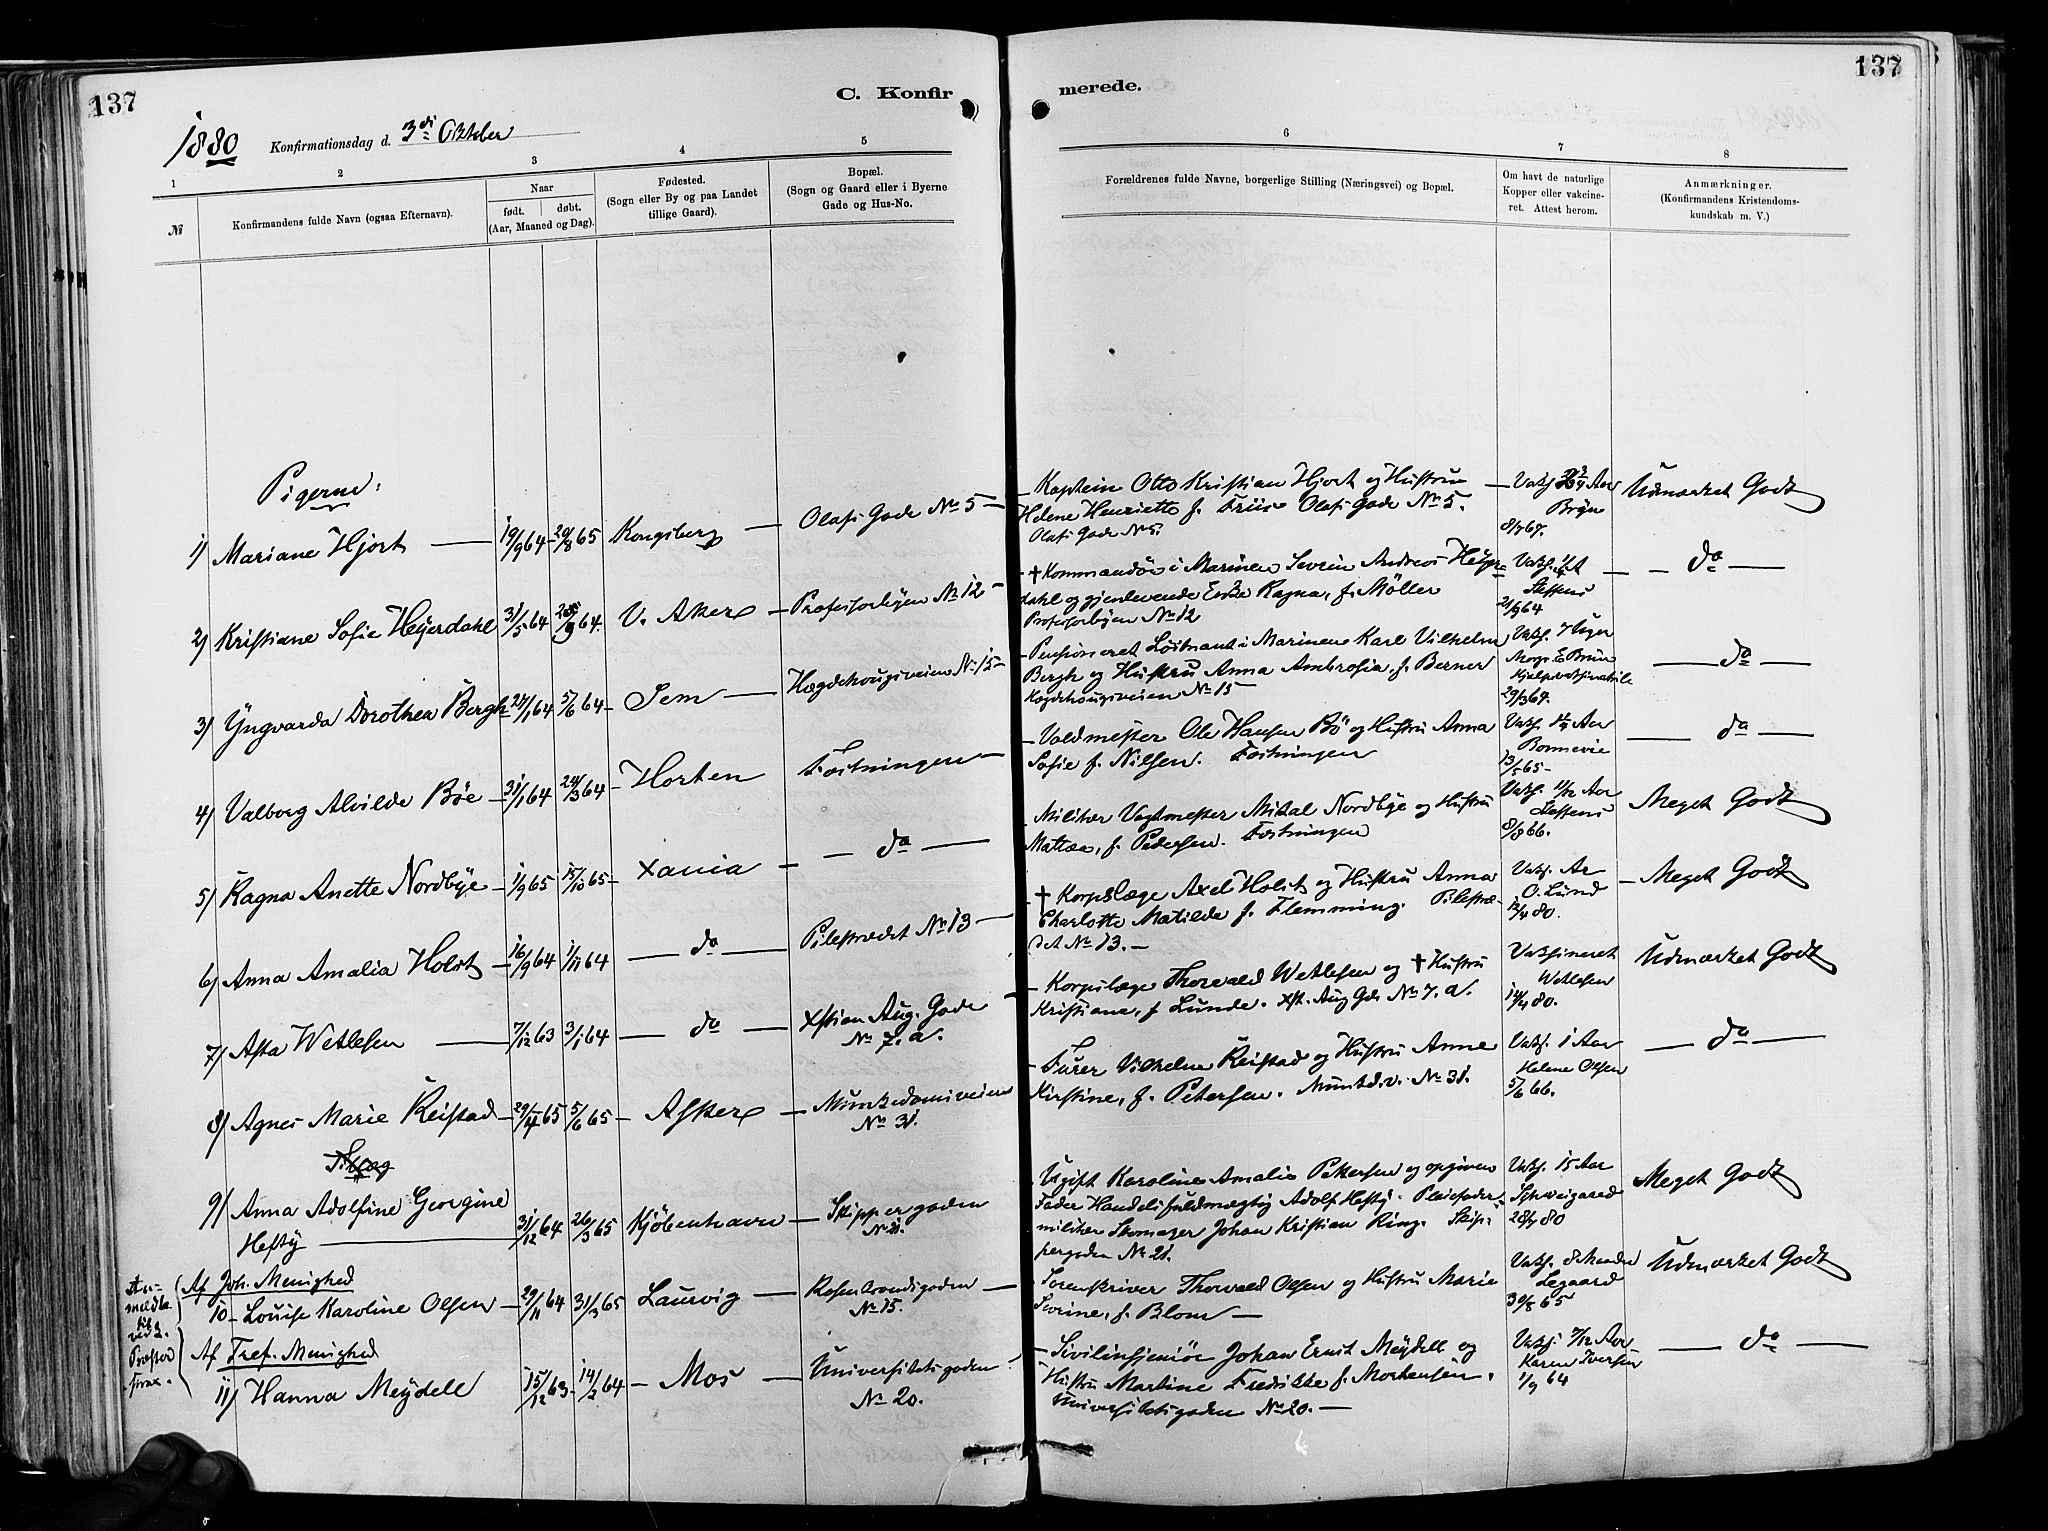 137
C. Konfir
merede.
137
1880 Konfirmationsdag d. 3di Oktober
1
2
3
4
5
6
7
8
№
Konfirmandens fulde Navn (ogsaa Efternavn).
Naar
født. døbt.
(Aar, Maaned og Dag).
Fødested.
(Sogn eller By og paa Landet
tillige Gaard).
Bopæl.
(Sogn og Gaard eller i Byerne
Gade og Hus-No.
Forældrenes fulde Navne, borgerlige Stilling (Næringsvei) og Bopæl.
Om havt de naturlige
Kopper eller vakcine-
ret. Attest herom.
Anmærkninger.
(Konfirmandens Kristendoms-
kundskab m. V.)
Pigerne:
1) Mariane Hjort — 19/9 64 – 20/8 65 Kongsberg — Olafs Gade No 5 —
– Kaptein Otto Kristian Hjort og Hustru
Helene Henriette f. Friis Olafs Gade No 5.
Olafs Gade No 5.
Aar
Bryn
8/7 67.
Udmærket Godt
2) Kristiane Sofie Heyerdahl 31/5 64 9 64. V. Aker – Professorbyen No 12 –
– † Kommandør i Marinen Severin Andreas Heyer-
dahl og gjenlevende Enke Ragna, f. Møller
Professorbyen No 12
Steffens
21/9 64
— do —
3) Yngvarda Dorothea Bergh 24/1 64 5/6 64 – Sem — Hægdehougsveien No 15 –
– Pensioneret Løitnant i Marinen Karl Vilhelm
Bergh og Hustru Anna Ambrosia, f. Berner
Hægdehougsveien No 15
Vaks. 7 Uger
29/3 64.
— do —
4) Valborg Alvilde Bøe – 31/1 64 24/3 64 – Horten Fæstningen —
– Valdmester Ole Hansen Bö og Hustru Anna
Sofie f. Nilsen. Fæstningen
Aar
Bonnevie
13/5 65 –
— do —
5) Ragna Anette Nordbye – 1/9 65 15/10 65 – Xania – — do —
– Militær Vagtmester Mikal Nordbye og Hustru
Mathea, f. Pedersen. Fæstningen
Vaks. 11/12 Aar
Steffens
8/8 66.
Meget Godt
6) Anna Amalia Holst – 16/9 64 1/11 64 — do — Pilestrædet No 13 —
– † Korpslæge Axel Holst og Hustru Anna
Charlotte Matilde f. Flemming. Pilestræ-
det No 13. –
Vaks. Ar
O. Lund
12/4 80.
– Meget Godt
7) Asta Wetlesen — 7/12 63 3/1 64 — do — Xstian Aug. Gade
No 7. a.
– Korpslæge Thorvald Wetlesen og † Hustru
Kristiane, f. Lunde. Xst. Aug Gde No 7. a.
Vaksineret
Wetlesen
14/4 80.
Udmærket Godt
8) Agnes Marie Reistad – 29/4 65 5/6 65 – Asker – Munkedamsveien
No 31.
– Furer Vilhelm Reistad og Hustru Anne
Kirstine, f. Petersen. Munkd.v. No 31.
Vaks. 1 Aar
Helene Olsen
5/6 66.
— do —
9) Anna Adolfine Georgine
Hefty — 31/12 64 26/3 65 Kjöbenhavn – Skippergaden
No 21.
Ugift Karoline Amalie Petersen og opgiven
Fader Handelsfuldmægtig Adolf Hefty. Pleiefader
militær Skomager Johan Kristian Ring. Skip-
pergaden No 21.
Vaks. 15 Aar
Schweigaard
28/4 80
Meget Godt
An-
meldte
til
ved 2.
Præster
Af Joh. Menighed
10 – Louise Karoline Olsen – 29/11 64 31/3 65 Laurvig — Rosenkrandsgaden —
No 15.
– Sorenskriver Thorvald Olsen og Hustru Marie
Severine, f. Blom —
Vaks. 8 Maaneder
Legaard
30/8 65
Udmærket Godt
Af Tref. Menighed
11) Hanna Meydell 15/12 63 – 14/2 64 – Mos – Universitetsgaden
No 20.
– Sivilinsjeniør Johan Ernst Meydell og
Hustru Martine Fredrikke f. Mortensen.
Universitetsgaden No 20. –
Vaks. 7/12 Aar
Karen Iversen
1/9 64
— do —